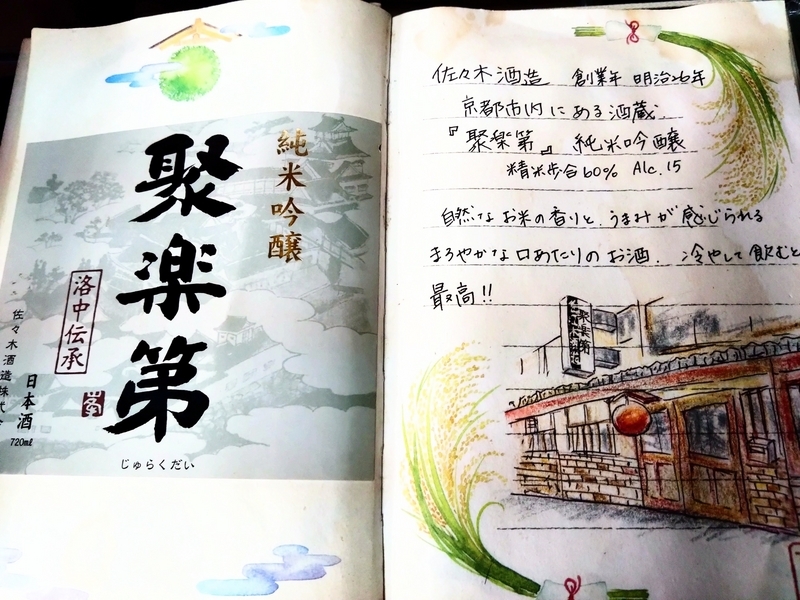 純米吟醸
聚楽第
洛中伝承
日本酒
720ml
じゅらくだい
佐々木酒造 創業年 明治26年
京都市内にある酒蔵.
『聚楽第』 純米吟醸
精米歩合60% Alc.15
自然なお米の香りと.うまみが感じられる
まろやかな口あたりのお酒. 冷やして飲むと
最高!!
聚楽第